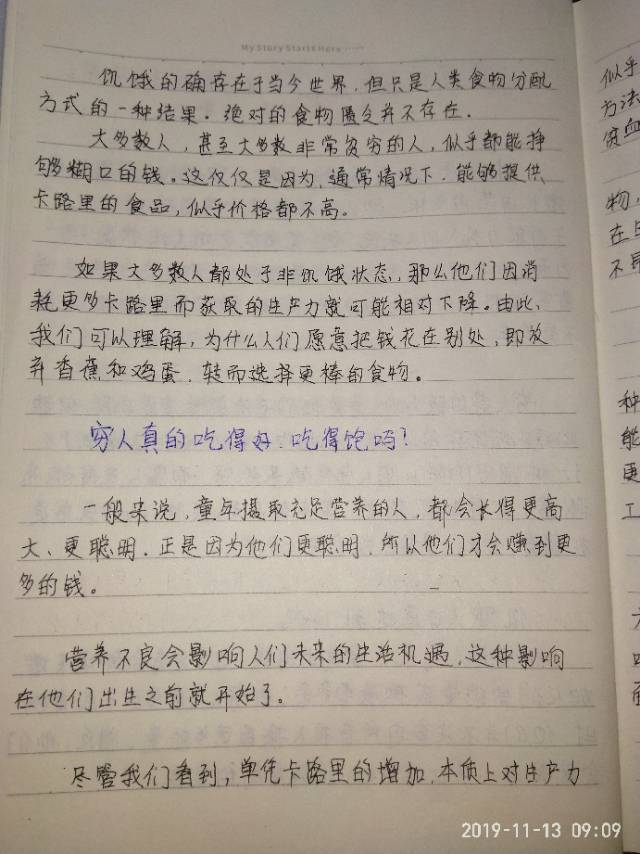 My Story Starts Here ······
饥饿的确存在于当今世界,但只是人类食物分配
方式的一种结果.绝对的食物匮乏并不存在.
大多数人,甚至大多数非常贫穷的人,似乎都能挣
够糊口的钱。这仅仅是因为,通常情况下,能够提供
卡路里的食品,似乎价格都不高。
如果大多数人都处于非饥饿状态,那么他们因消
耗更多卡路里而获取的生产力就可能相对下降。由此,
我们可以理解,为什么人们愿意把钱花在别处,即放
弃香蕉和鸡蛋,转而选择更棒的食物。
穷人真的吃得好、吃得饱吗?
一般来说,童年摄取充足营养的人,都会长得更高
大、更聪明.正是因为他们更聪明,所以他们才会赚到更
多的钱。
营养不良会影响人们未来的生活机遇,这种影响
在他们出生之前就开始了。
尽管我们看到,单凭卡路里的增加,本质上对生产力
似乎
方法
贫血
物,
在
不
种
能
更
工
2019-11-13 09:09